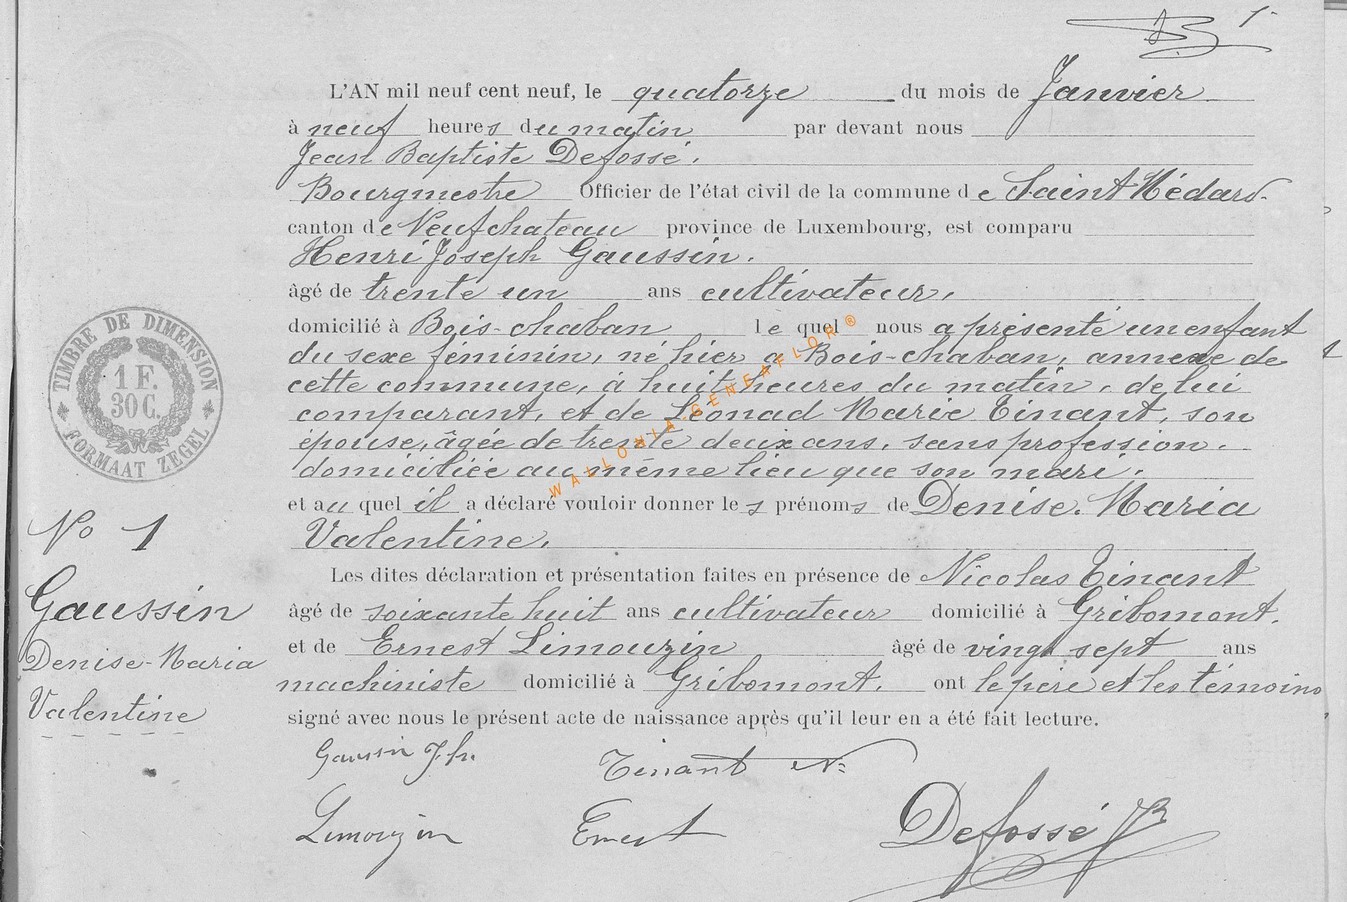 1
L'AN mil neuf cent neuf, le quatorze du mois de Janvier
à neuf heures du matin par devant nous
Jean Baptiste Defossé.
Bourgmestre Officier de l'état civil de la commune de Saint Médard
canton de Neufchateau province de Luxembourg, est comparu
Henri Joseph Gaussin.
âgé de trente un ans cultivateur,
domicilié à Bois-chaban le quel nous a présenté un enfant
du sexe féminin, né hier à Bois-chaban, annexe de
cette commune, à huit heures du matin, de lui
comparant, et de Léonad Marie Tinant, son
épouse, âgée de trente deux ans, sans profession.
domiciliée au même lieu que son mari.
et au quel il a déclaré vouloir donner les prénoms de Denise. Maria
Valentine.
Les dites déclaration et présentation faites en présence de Nicolas Tinant
âgé de soixante huit ans cultivateur domicilié à Gribomont.
et de Ernest Limouzin âgé de vingt sept ans
machiniste domicilié à Gribomont. ont le père et les témoins
signé avec nous le présent acte de naissance après qu'il leur en a été fait lecture.
Gaussin J.h.
Tinant N.
Limouzin Ernest
Defossé JB
TIMBRE DE DIMENSION
1 F.
30 C.
FORMAAT ZEGEL
No 1
Gaussin
Denise-Maria
Valentine
WALLONIA GENEAFLOR ®